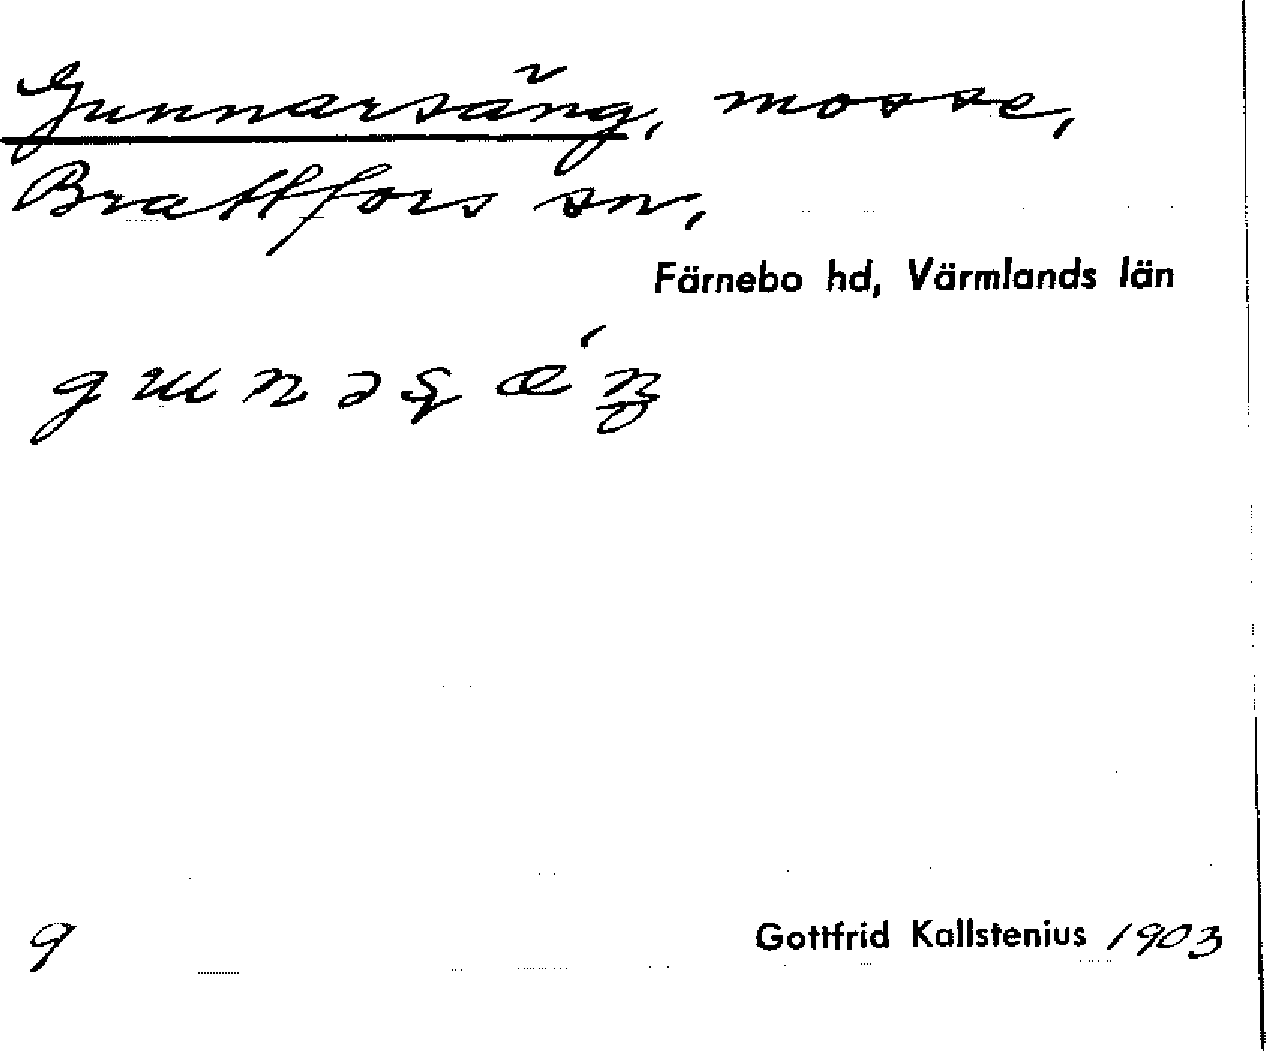 Gunnarsäng, mosse,
Brattfors sn,
Färnebo hd, Värmlands län
9
Gottfrid Kallstenius 1903